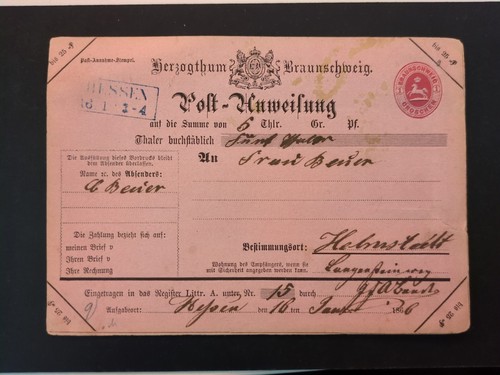 bis 25 #
bis 25 #
Post-Annahme-Stempel.
Herzogthum Braunschweig.
BRAUNSCHWEIG
GROSCHEN
HESSEN
16 1 3-4
Post-Anweisung
auf die Summe von 5 Thlr. Gr. Pf.
Thaler buchstäblich Fünf Thaler
Die Ausfüllung dieses Vordrucks bleibt
dem Absender überlassen.
An Frau Beuer
Name ꝛc. des Absenders:
C Beuer
Die Zahlung bezieht sich auf:
meinen Brief v
Ihren Brief v
Ihre Rechnung
Bestimmungsort: Helmstedt
Wohnung des Empfängers, wenn sie
mit Sicherheit angegeben werden kann.
Eingetragen in das Register Littr. A. unter Nr. 15 durch
Aufgabeort: Hessen den 16 ten Januar 1866
bis 25 #
bis 25 #